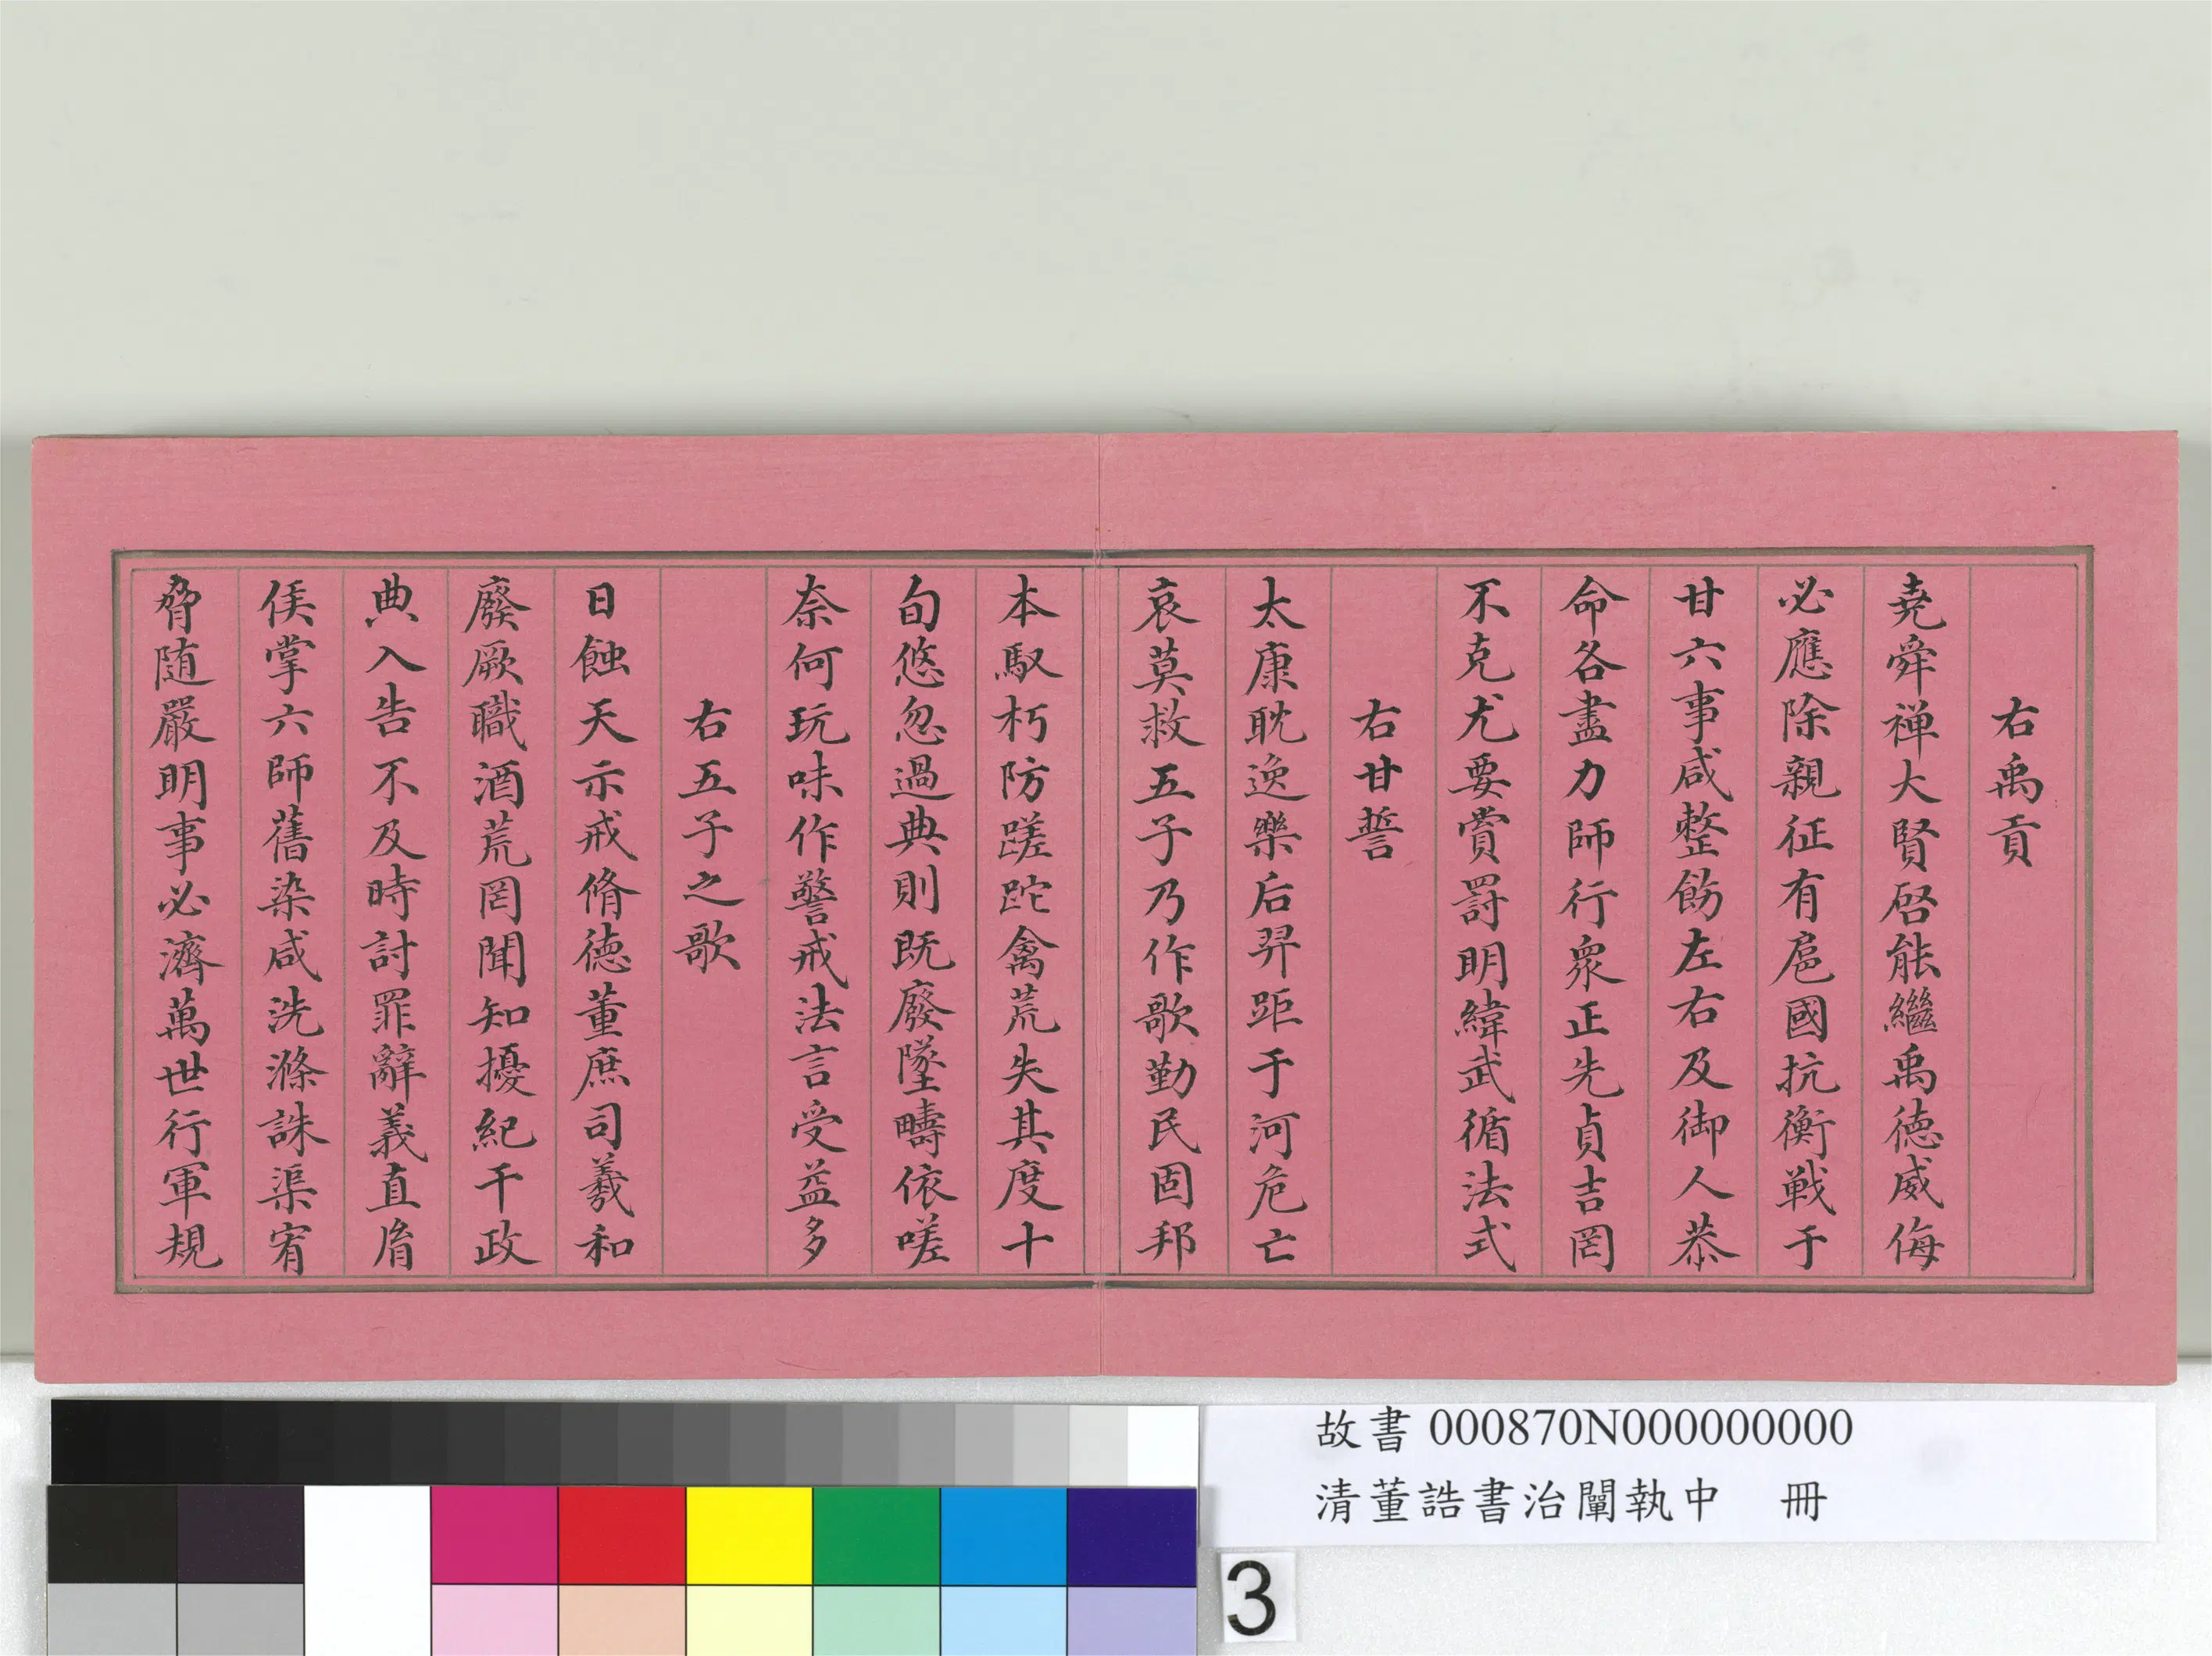 右禹貢
堯舜禅大賢啓能繼禹徳威侮
必應除親征有扈國抗衡戦于
甘六事咸整飭左右及御人恭
命各盡力師行衆正先貞吉罔
不克尤要賞罰明緯武循法式
右甘誓
太康耽逸樂后羿距于河危亡
哀莫救五子乃作歌勤民固邦
本馭朽防蹉跎禽荒失其度十
旬悠忽過典則既廢墜疇依嗟
奈何玩味作警戒法言受益多
右五子之歌
日蝕天示戒脩徳董庶司羲和
廢厥職酒荒罔聞知擾紀干政
典入告不及時討罪辭義直胤
侯掌六師舊染咸洗滌誅渠宥
脅随嚴明事必濟萬世行軍規
故書 000870N000000000
清董誥書治闡執中 冊
3